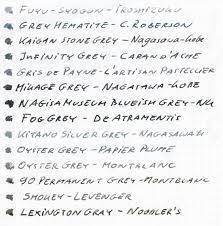 Fuyu-Syogun - Iroshizuku
Grey Hematite - C. Roberson
Kaigan Stone Grey - Nagasawa-Kobe
Infinity Grey - Caran d'Ache
Gris de Payne - L'artisan Pastellier
Mikage Grey - Nagasawa-Kobe
Nagisa Museum Blueish Grey - NK
Fog Grey - De Atramentis
Kitano Silver Grey - Nagasawa-K
Oyster Grey - Papier Plume
Oyster Grey - Montblanc
90 Permanent Grey - Montblanc
Smokey - Levenger
Lexington Gray - Noodler's